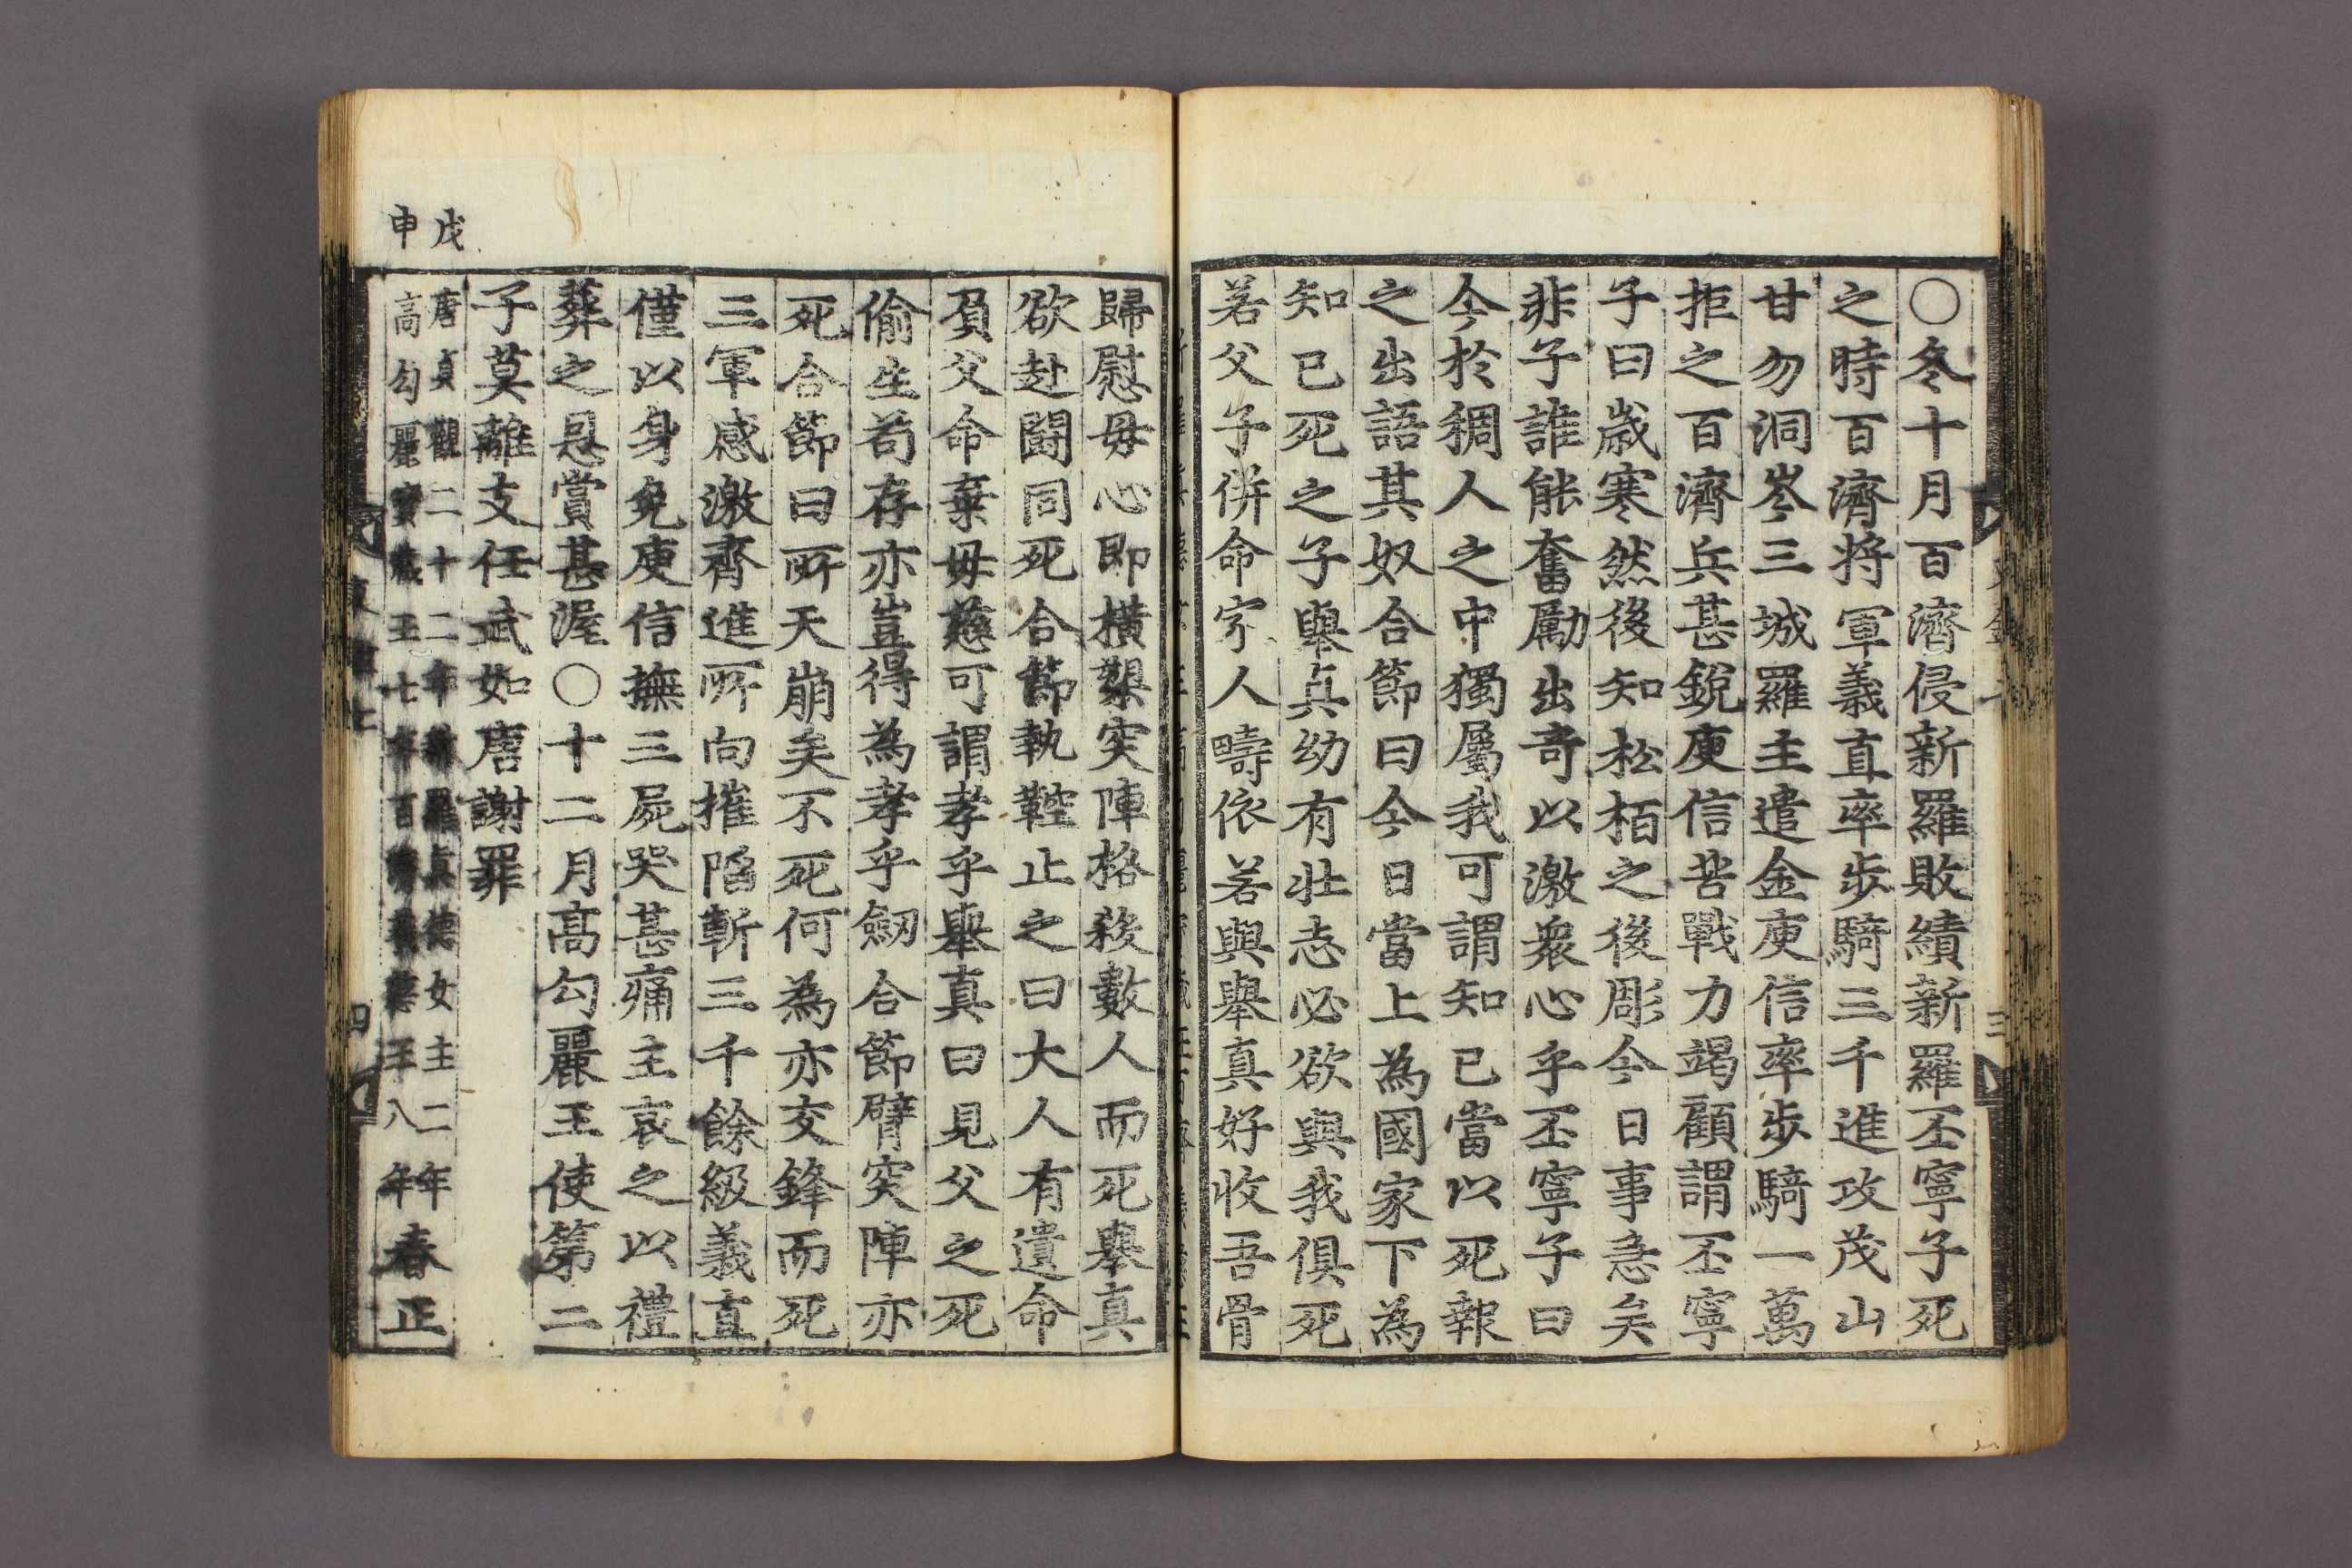 〇冬十月百濟侵新羅敗績新羅丕寧子死
之時百濟将軍義直率步騎三千進攻茂山
甘勿洞岑三城羅主遣金庾信率步騎一萬
拒之百濟兵甚銳庾信苦戰力竭顧謂丕寧
子曰歲寒然後知松栢之後彫今日事急矣
非子誰能奮勵出奇以激衆心乎丕寧子曰
今於稠人之中獨屬我可謂知已當以死報
之出語其奴合節曰今日當上為國家下為
知已死之子舉真幼有壯志必欲與我俱死
若父子併命家人疇依若與舉真好收吾骨
歸慰母心即橫槊突陣格殺數人而死舉真
欲赴鬪同死合節執鞚止之曰大人有遺命
負父命棄母慈可謂孝乎舉真曰見父之死
偷生苟存亦豈得為孝乎劒合節臂突陣亦
死合節曰所天崩矣不死何為亦交鋒而死
三軍感激齊進所向摧陷斬三千餘級義直
僅以身免庾信撫三屍哭甚痛主哀之以禮
葬之恩賞甚渥〇十二月高勾麗王使第二
子莫離支任武如唐謝罪
戊申
唐貞觀二十二年新羅真德女主二年
高勾麗寶臧王七年百濟義慈王八年
春正